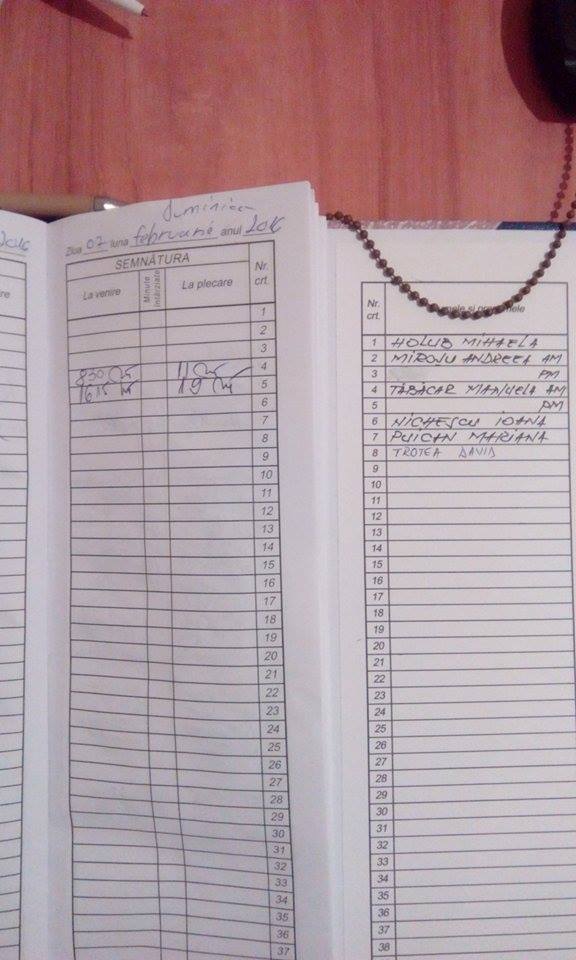 2016
re
duminica
Ziua 07 luna februarie anul 2016
SEMNĂTURA
La venire
Minute întârziate
La plecare
Nr. crt.
1
2
3
830 11 4
1615 19 5
6
7
8
9
10
11
12
13
14
15
16
17
18
19
20
21
22
23
24
25
26
27
28
29
30
31
32
33
34
35
36
37
Nr. crt.
mele și prenumele
1 HOLUB MIHAELA
2 MIROSU ANDREEA AM
3 PM
4 TABACAR MANUELA AM
5 PM
6 NICHESCU IOANA
7 PUICAN MARIANA
8 TROTEA DAVID
9
10
11
12
13
14
15
16
17
18
19
20
21
22
23
24
25
26
27
28
29
30
31
32
33
34
35
36
37
38